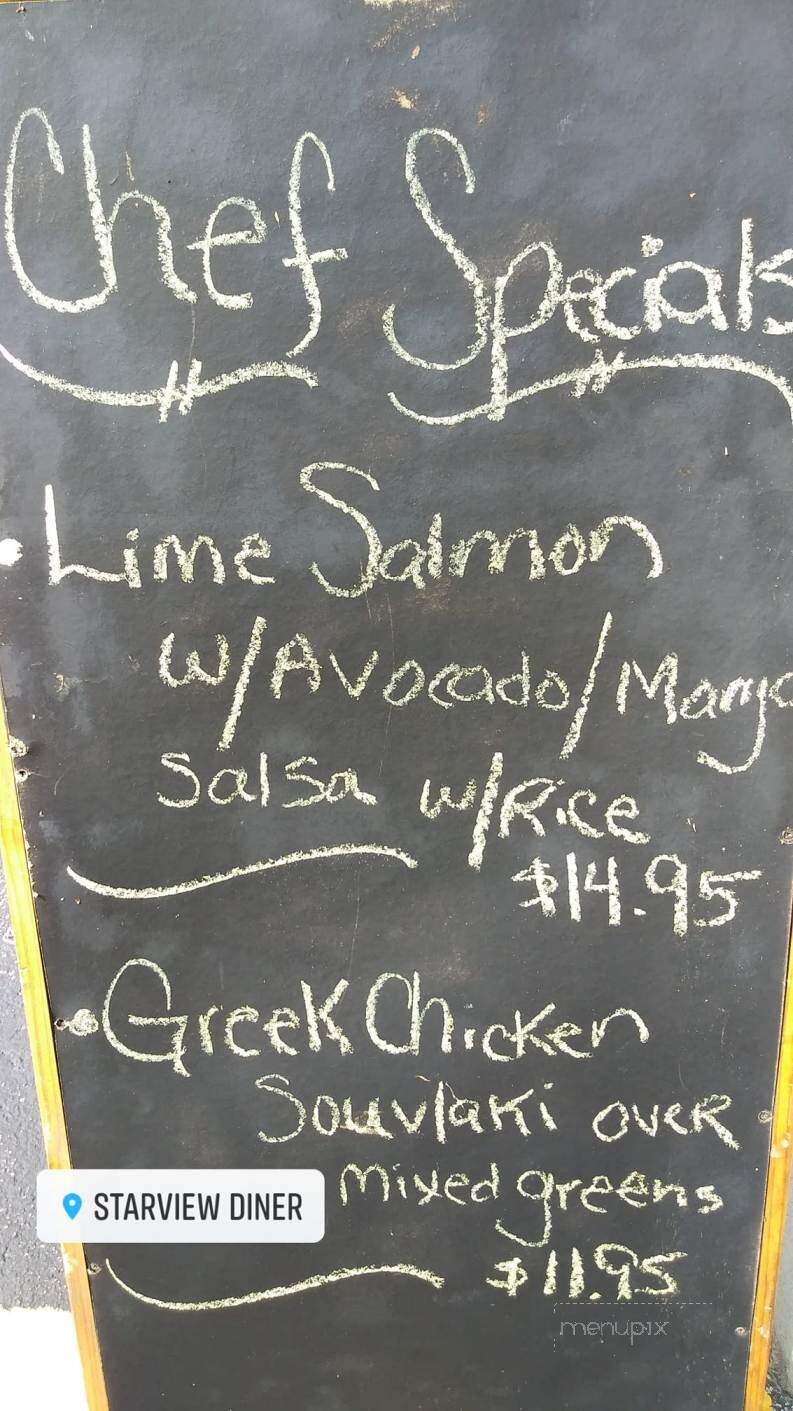 Chef Specials
Lime Salmon
w/Avocado/Mango
Salsa w/Rice
$14.95
Greek Chicken
Souvlaki over
mixed greens
STARVIEW DINER
$11.95
menupix